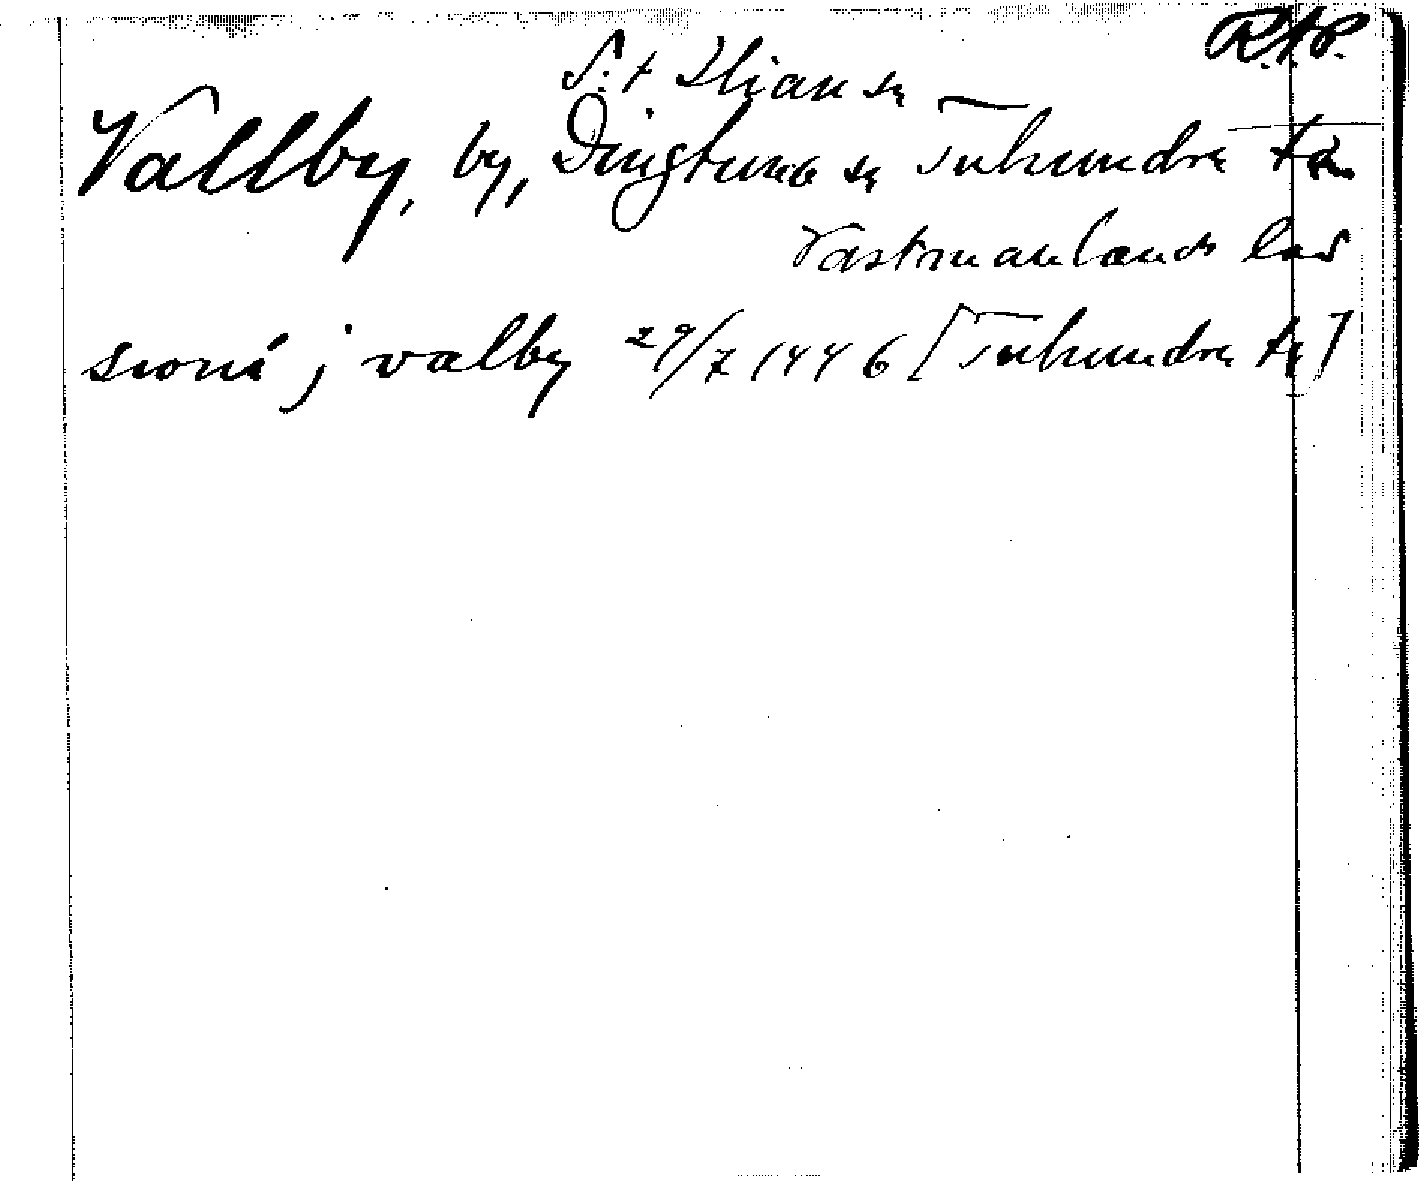 R.A.P.
S:t Ilians sn
Vallby, by, Dingtuna sn Tuhundra hd
Västmanlands län
suoni j valby 29/7 1446 [Tuhundra hd]